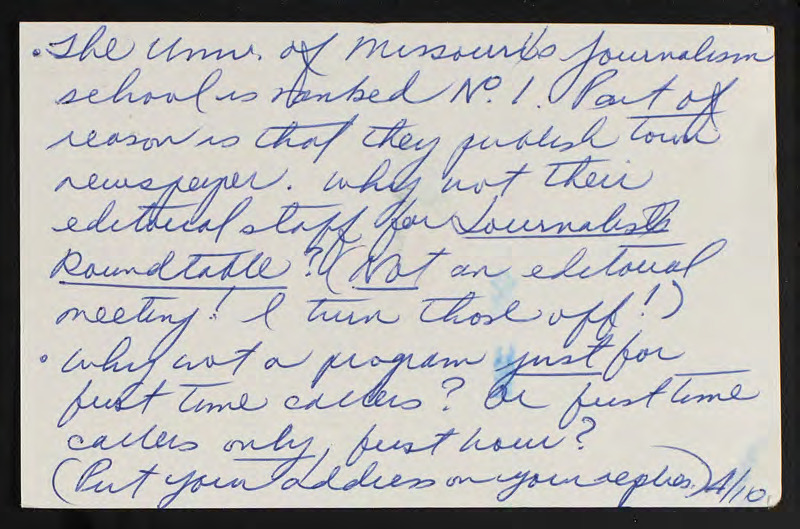 • The Univ. of Missouri's journalism
school is ranked No. 1. Part of
reason is that they publish town
newspaper. Why not their
editorial staff for Journalists
Roundtable? (Not an editorial
meeting! I turn those off!)
• Why not a program just for
first time callers? Or first time
callers only, first hour?
(Put your address on your replies.) 4/10